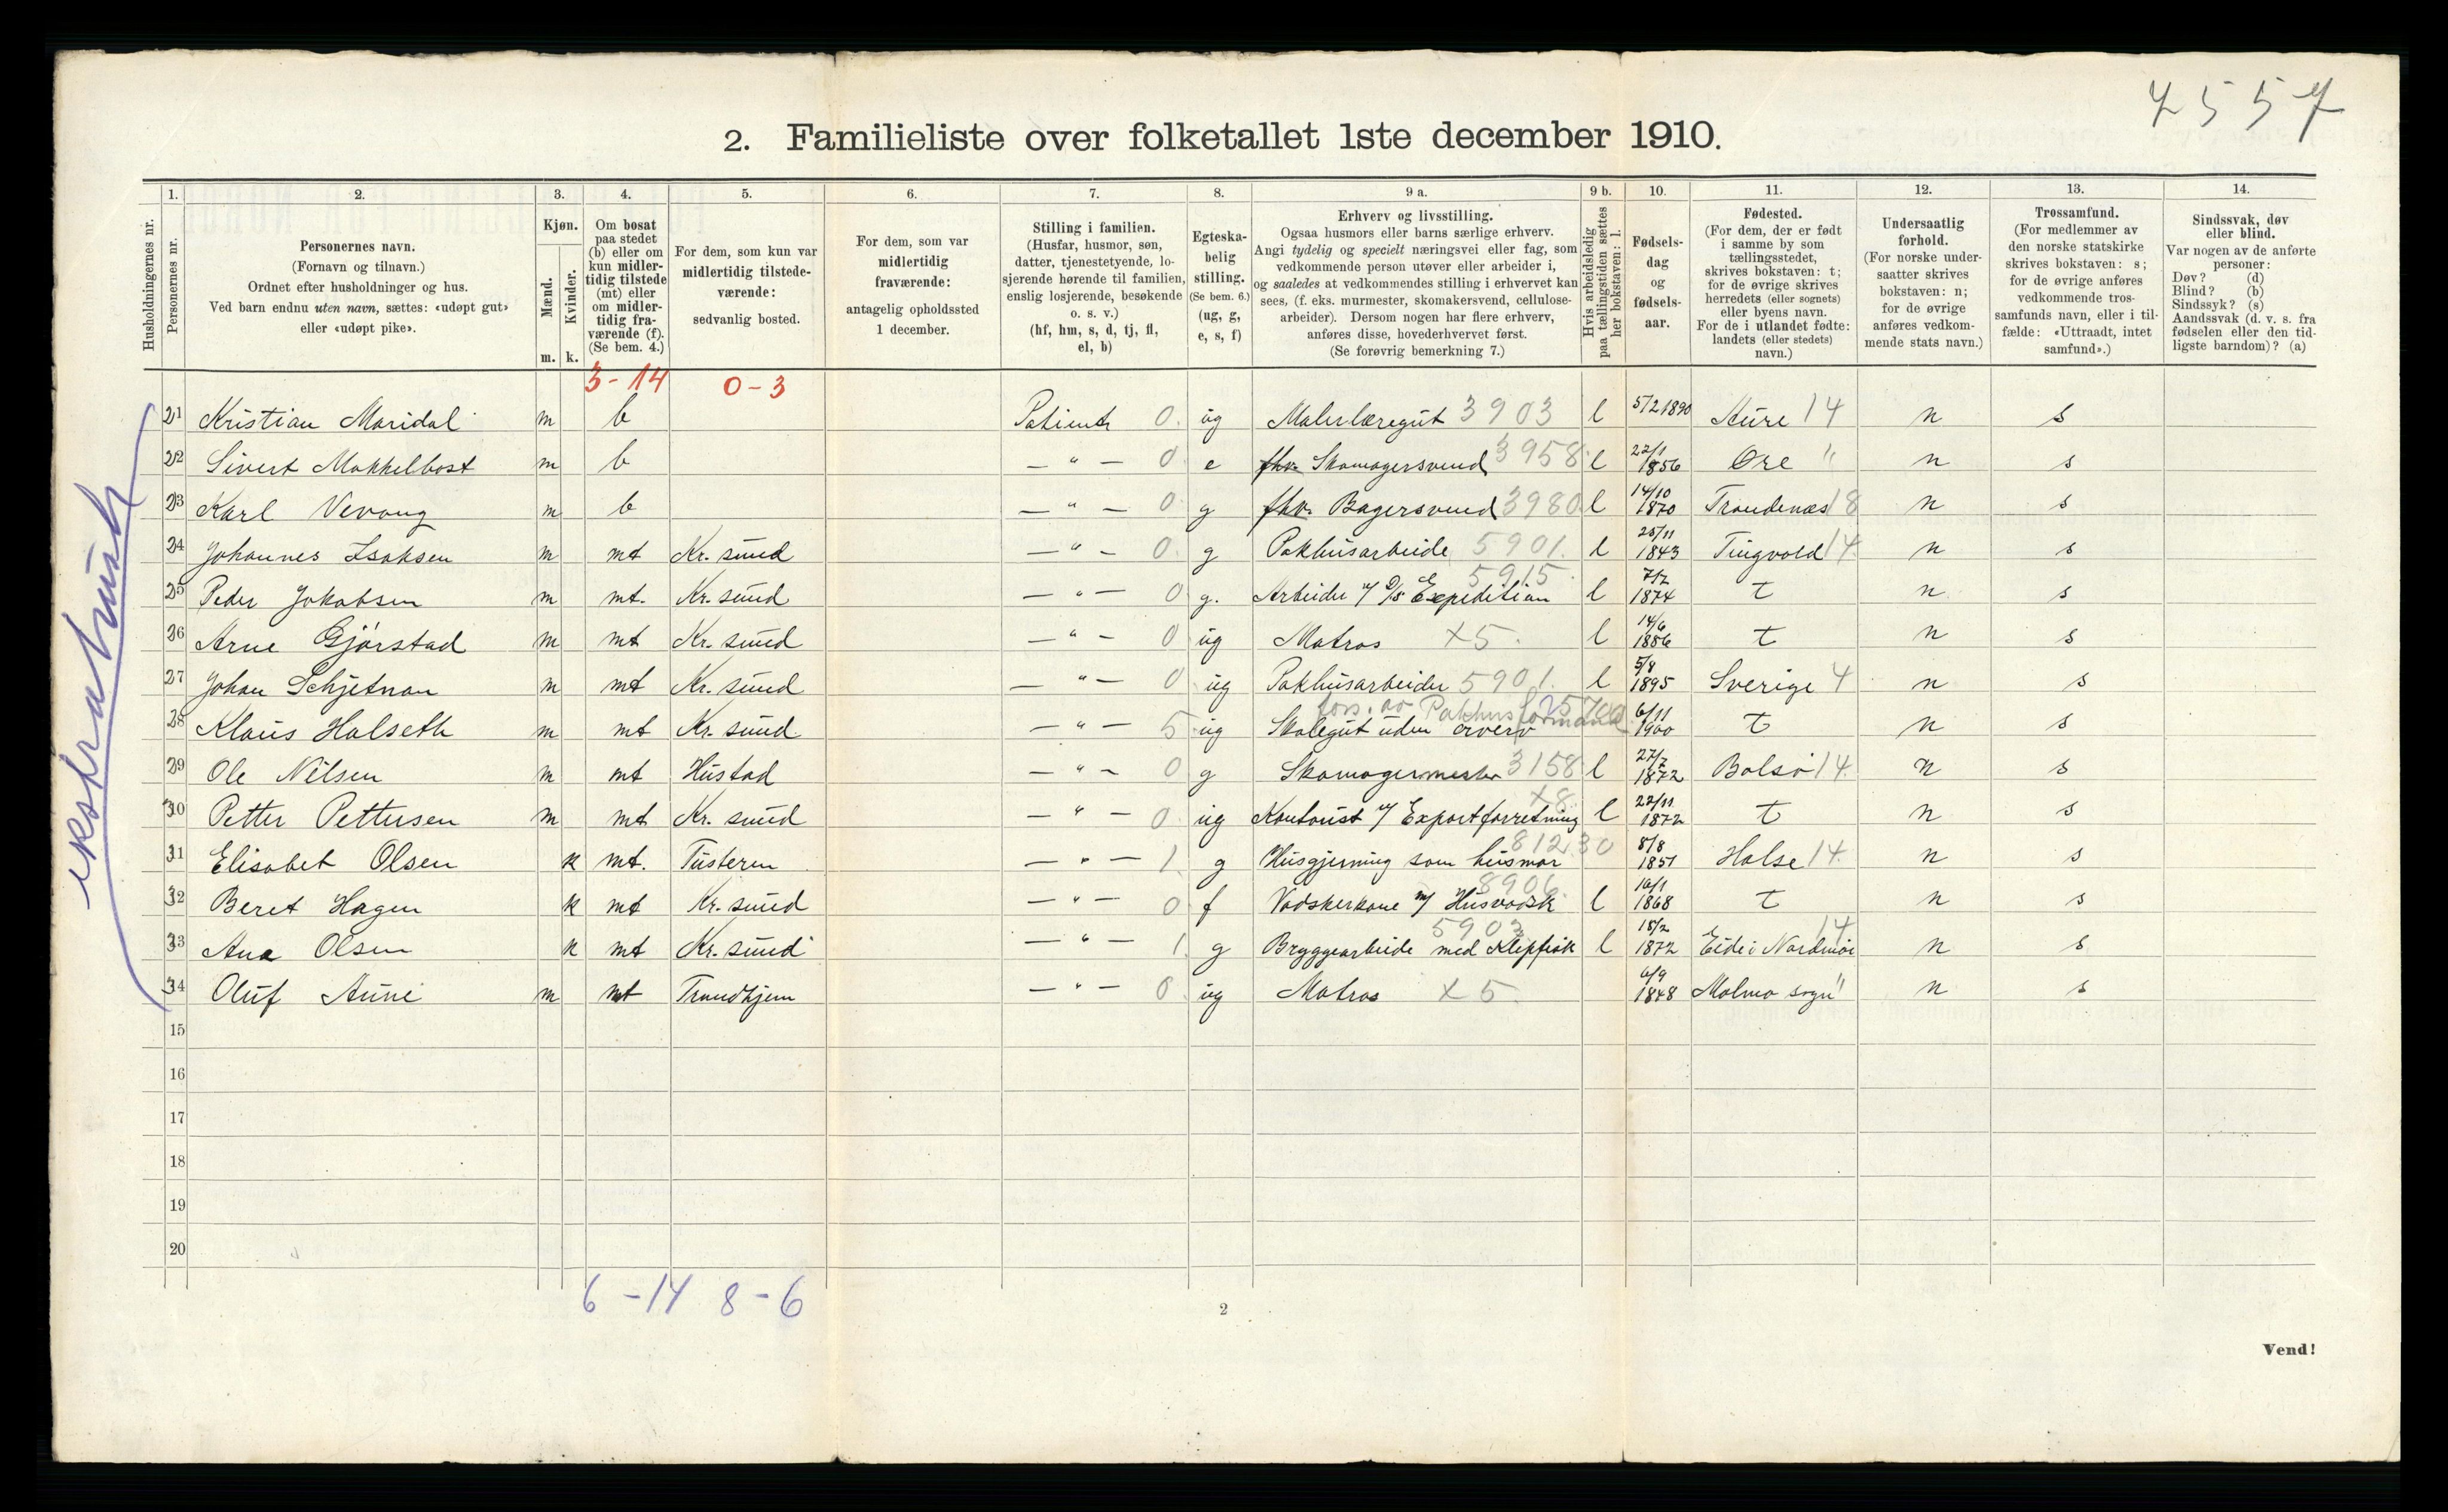 4557
2. Familieliste over folketallet 1ste december 1910.
1. 2. 3. 4. 5. 6. 7. 8. 9 a. 9 b. 10. 11. 12. 13. 14.
Husholdningernes nr.
Personernes nr.
Personernes navn.
(Fornavn og tilnavn.)
Ordnet efter husholdninger og hus.
Ved barn endnu uten navn, sættes: «udøpt gut»
eller «udøpt pike».
Kjøn.
Mænd.
Kvinder.
m. k.
Om bosat
paa stedet
(b) eller om
kun midler-
tidig tilstede
(mt) eller
om midler-
tidig fra-
værende (f).
(Se bem. 4.)
For dem, som kun var
midlertidig tilstede-
værende:
sedvanlig bosted.
For dem, som var
midlertidig
fraværende:
antagelig opholdssted
1 december.
Stilling i familien.
(Husfar, husmor, søn,
datter, tjenestetyende, lo-
sjerende hørende til familien,
enslig losjerende, besøkende
o. s. v.)
(hf, hm, s, d, tj, fl,
el, b)
Egteska-
belig
stilling.
(Se bem. 6.)
(ug, g,
e, s, f)
Erhverv og livsstilling.
Ogsaa husmors eller barns særlige erhverv.
Angi tydelig og specielt næringsvei eller fag, som
vedkommende person utøver eller arbeider i,
og saaledes at vedkommendes stilling i erhvervet kan
sees, (f. eks. murmester, skomakersvend, cellulose-
arbeider). Dersom nogen har flere erhverv,
anføres disse, hovederhvervet først.
(Se forøvrig bemerkning 7.)
Hvis arbeidsledig
paa tællingstiden sættes
her bokstaven: l.
Fødsels-
dag
og
fødsels-
aar.
Fødested.
(For dem, der er født
i samme by som
tællingsstedet,
skrives bokstaven: t;
for de øvrige skrives
herredets (eller sognets)
eller byens navn.
For de i utlandet fødte:
landets (eller stedets)
navn.)
Undersaatlig
forhold.
(For norske under-
saatter skrives
bokstaven: n;
for de øvrige
anføres vedkom-
mende stats navn.)
Trossamfund.
(For medlemmer av
den norske statskirke
skrives bokstaven: s;
for de øvrige anføres
vedkommende tros-
samfunds navn, eller i til-
fælde: «Uttraadt, intet
samfund».)
Sindssvak, døv
eller blind.
Var nogen av de anførte
personer:
Døv? (d)
Blind? (b)
Sindssyk? (s)
Aandssvak (d. v. s. fra
fødselen eller den tid-
ligste barndom)? (a)
3-14 0-3
21 Kristian Moridal m b Patient 0. ug Malerlæregut 3903 l 5/2 1890 Aure 14 n s
22 Sivert Mokkelbost m b — " — 0 e fhv. Skomagersvend 3958 l 22/1 1856 Øre " n s
23 Karl Vevang m b — " — 0 g fhv. Bagersvend 3980 l 14/10 1870 Trondenæs 18 n s
24 Johannes Isaksen m mt Kr. sund — " — 0 g Pakhusarbeide 5901. l 25/11 1843 Tingvold 14 n s
25 Peder Jakobsen m mt. Kr. sund — " — 0 g. Arbeider v/ D/s Expedition 5915 l 7/2 1874 t n s
26 Arne Gjørstad m mt Kr. sund — " — 0 ug Matros x5. l 14/6 1886 t n s
27 Johan Schjetnan m mt Kr. sund — " — 0 ug Pakhusarbeider 5901. l 5/8 1895 Sverige 4 n s
fors. av Pakhusformand
28 Klaus Halseth m mt Kr. sund — " — 5 ug Skolegut uden erverv 6/11 1900 t n s
29 Ole Nilsen m mt Hustad — " — 0 g Skomagermester 3158 l 27/7 1872 Bolsø 14 n s
30 Petter Pettersen m mt Kr. sund — " — 0 ug Kontorist v/ Exportforretning x8 l 22/11 1872 t n s
31 Elisabet Olsen k mt. Tusteren — " — 1 g Husgjerning som husmor 81230 8/8 1851 Halse 14 n s
32 Beret Hagen k mt Kr. sund — " — 0 f Vadskerkone m/ Husvadsk 8906 l 16/1 1868 t n s
33 Ana Olsen k mt Kr. sund — " — 1 g Bryggearbeide med Klipfisk 5903 l 18/2 1872 Eide i Nordmør 14 n s
34 Oluf Aune m mt Trondhjem — " — 0 ug Matros x5 6/9 1848 Malmo sogn " n s
15
16
17
18
19
20
6-14 8-6
2
Vend!